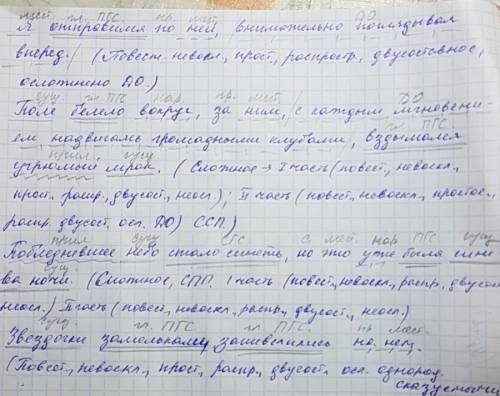 мест. гл. ПГС пр. мест. ДО
Я отправился по ней, внимательно поглядывая
вперед. (Повест. невоскл., прост., распростр., двусоставное,
осложнено ДО.)
сущ. гл. ПГС нар. пр. мест. ДО
Поле белело вокруг, за ним, с каждым мгновени-
гл. ПГС
ем, надвигаясь громадными клубами, вздымался
прил. сущ.
угрюмый мрак. (Сложное → I часть (повест., невоскл.,
прост., распр., двусост., неосл.); II часть (повест., невоскл., простое,
распр. двусост., осл. ДО) ССП.)
прил. сущ. СГС с. мест. нар. ПГС сущ.
Побледневшее небо стало синеть, но это уже была сине-
сущ.
ва ночи. (Сложное, СПП. I часть (повест., невоскл., распр., двусост.
неосл.) II часть (повест., невоскл., распр., двусост., неосл.)
сущ. гл. ПГС. гл. ПГС. пр. мест.
Звездочки замелькали, зашевелились на нем.
(Повест., невоскл., прост., распр., двусост., осл. однород.
сказуемыми